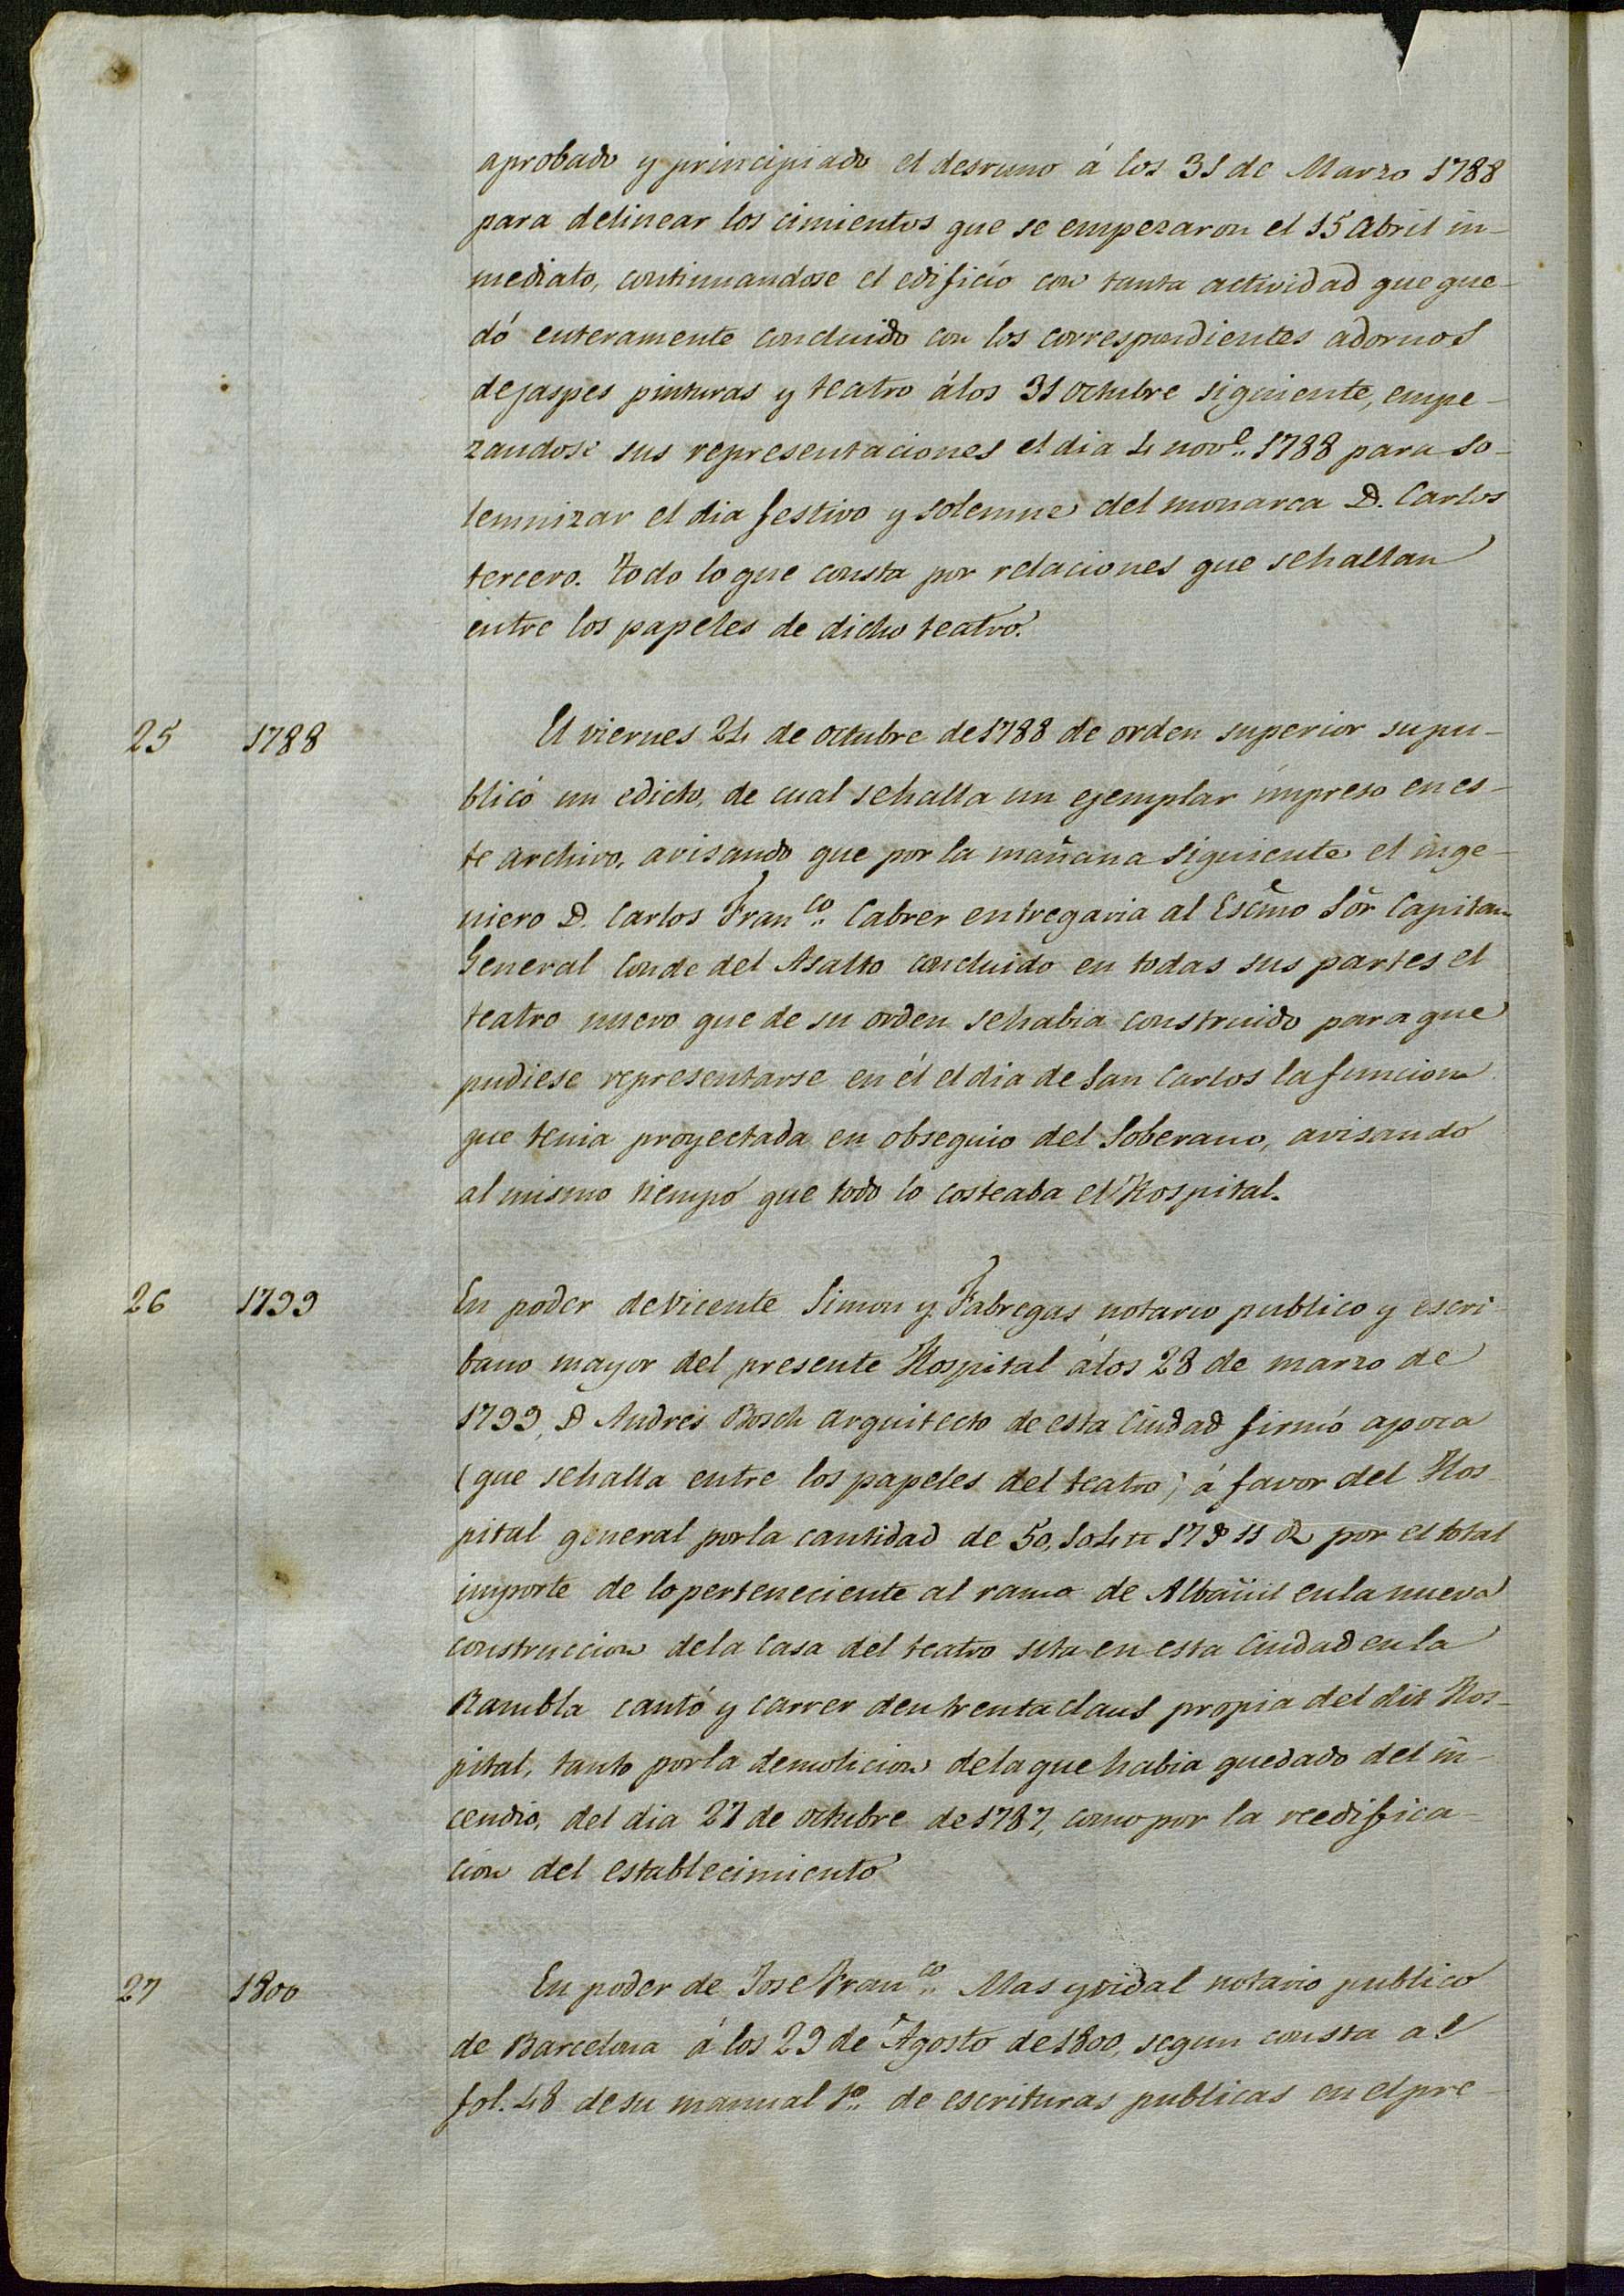 aprobado y principiado el desruno á los 31 de Marzo 1788
para delinear los cimientos que se empezaron el 15 Abril in-
mediato, continuandose el edificio con tanta actividad que que-
dó enteramente concluido con los correspondientes adornos
de jaspes pinturas y teatro á los 31 octubre siguiente, empe-
zandose sus representaciones el dia 4 nov.e 1788 para so-
lemnizar el dia festivo y solemne del monarca D. Carlos
tercero. Todo lo que consta por relaciones que se hallan
entre los papeles de dicho teatro.
25 1788 El viernes 24 de octubre de 1788 de orden superior su pu-
blicó un edicto, de cual se halla un ejemplar impreso en es-
te archivo, avisando que por la mañana siguiente el inge-
niero D. Carlos Fran.co Cabrer entregaria al Escmo Sör Capitan
General Conde del Asalto concluido en todas sus partes el
teatro nuevo que de su orden se habia construido para que
pudiese representarse en él el dia de San Carlos la funcion
que tenia proyectada en obsequio del Soberano, avisando
al mismo tiempo que todo lo costeaba el Hospital.
26 1799 En poder de Vicente Simon y Fabregas notario publico y escri-
bano mayor del presente Hospital á los 28 de marzo de
1799, D Andres Bosch arquitecto de esta Ciudad firmó apoca
(que se halla entre los papeles del teatro) á favor del Hos-
pital general por la cantidad de 50, 17 11 por el total
importe de lo perteneciente al ramo de Albañil en la nueva
construccion de la Casa del teatro sita en esta Ciudad en la
Rambla cantó y carrer den trenta claus propia del dit Hos-
pital, tanto por la demolicion de la que habia quedado del in-
cendio, del dia 27 de octubre de 1787, como por la reedifica-
cion del establecimiento
27 1800 En poder de Jose Fran.co Mas y vidal notario publico
de Barcelona á los 29 de Agosto de 1800, segun consta al
fol. 48 de su manual 1.o de escrituras publicas en el pre-